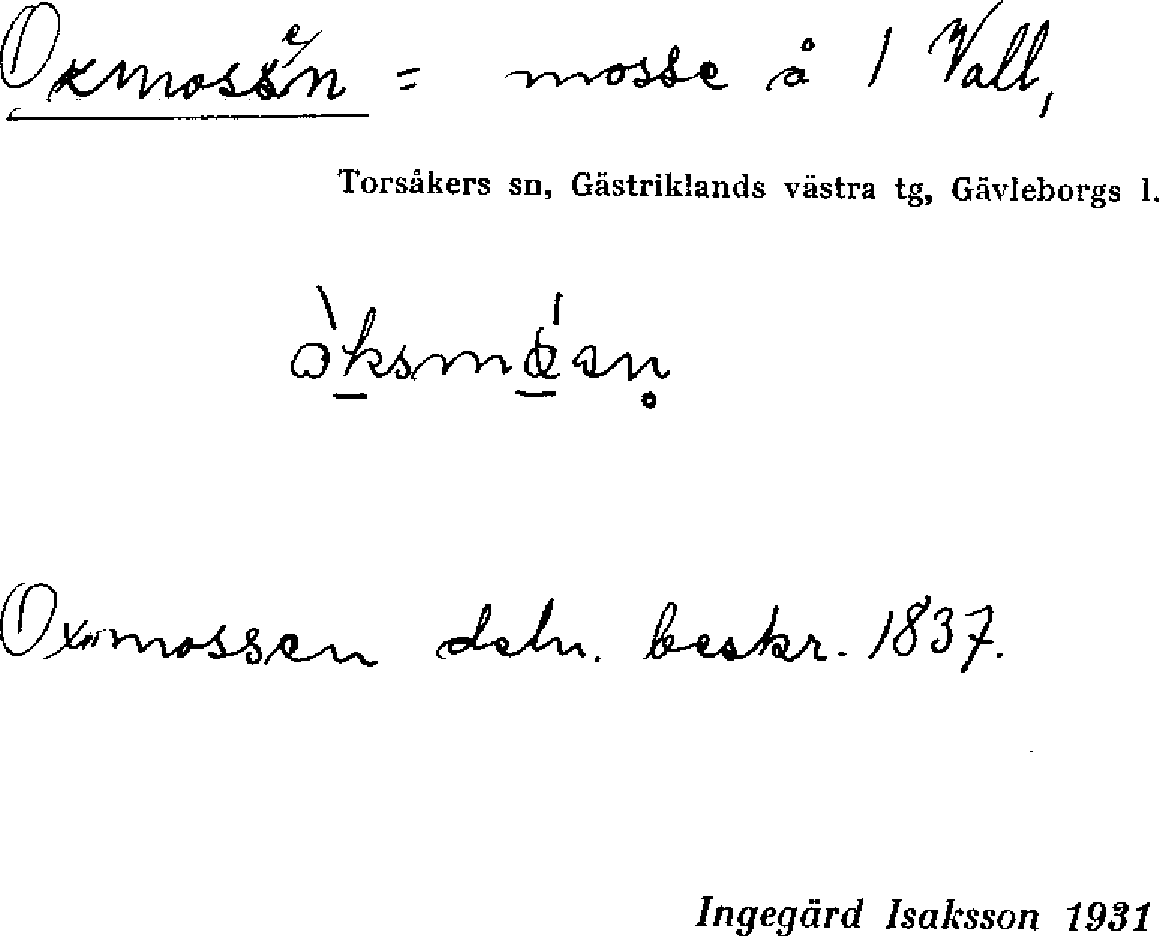 Oxmossen = mosse å 1 Vall,
Torsåkers sn, Gästriklands västra tg, Gävleborgs l.
Oxmossen deln. beskr. 1837.
Ingegärd Isaksson 1931